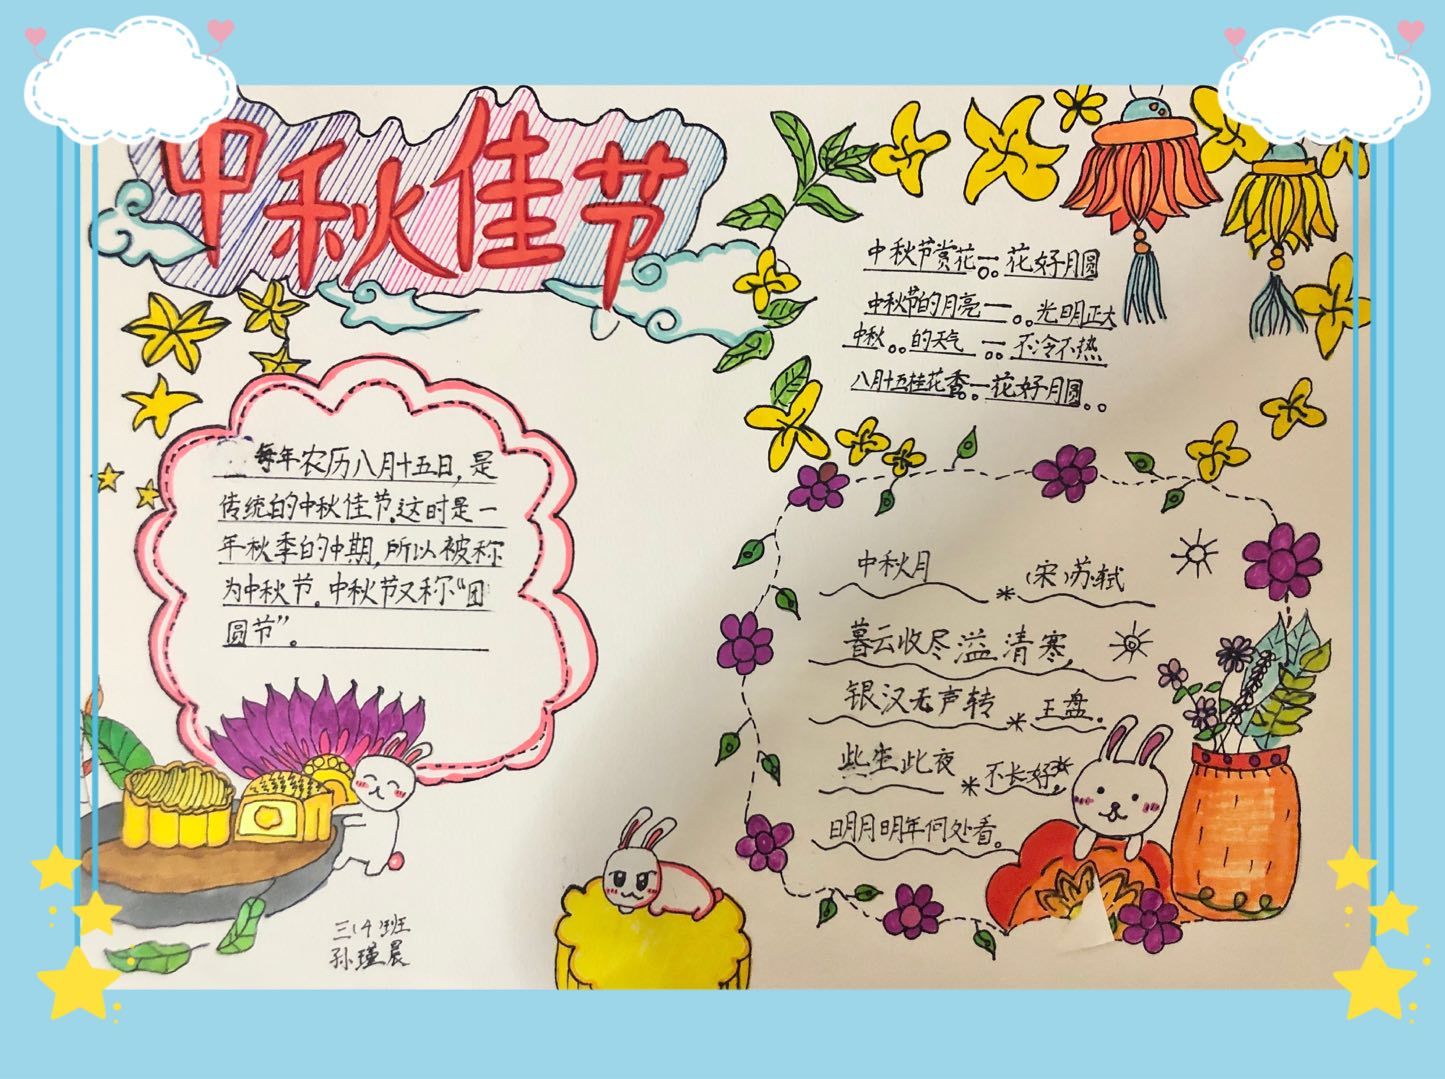 中秋佳节
每年农历八月十五日，是
传统的中秋佳节。这时是一
年秋季的中期，所以被称
为中秋节。中秋节又称“团
圆节”。
三(4)班
孙瑾晨
中秋节赏花——花好月圆
中秋节的月亮——光明正大
中秋的天气——不冷不热
八月十五桂花香——花好月圆
中秋月 (宋)苏轼
暮云收尽溢清寒，
银汉无声转玉盘。
此生此夜不长好，
明月明年何处看。